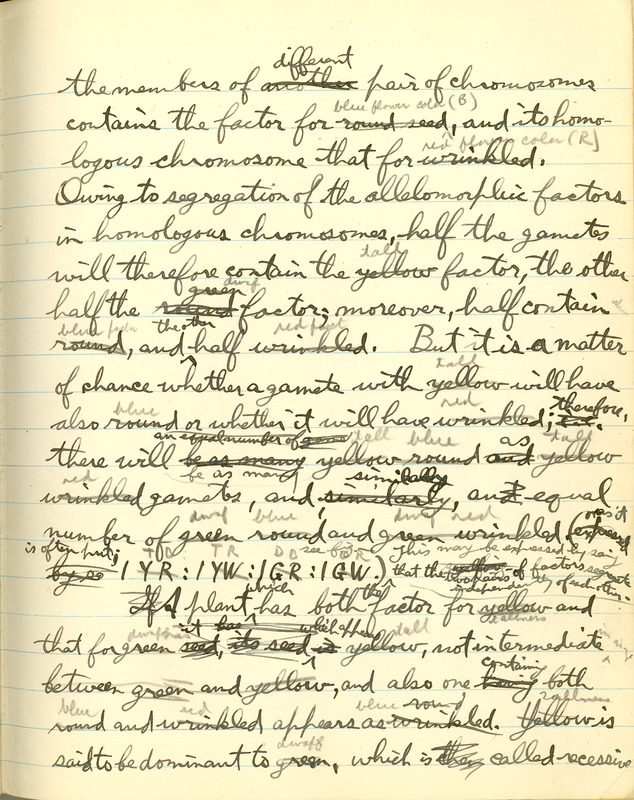 different
the members of another pair of chromosomes
blue flower color (B)
contains the factor for round seed, and its homo-
red flower color (R)
logous chromosome that for wrinkled.
Owing to segregation of the allelomorphic factors
in homologous chromosomes, half the gametes
tall
will therefore contain the yellow factor, the other
green dwarf
half the round factor; moreover, half contain
blue the other red
round, and half wrinkled. But it is a matter
tall
of chance whether a gamete with yellow will have
blue red therefore,
also round or whether it will have wrinkled;
an equal number of tall blue as tall
there will be as many yellow round and yellow
red be as many similarly
wrinkled gametes, and similarly, an equal
dwarf blue dwarf red or as it
number of green round and green wrinkled. (expressed
is often put; This may be expressed by saying
by so 1 YR : 1 YW : 1 GR : 1 GW.) that the of factors segregate
independently of each other.
which the
If a plant has both factor for yellow and
it has which appear tall
that for green seed, its seed is yellow, not intermediate
containing
between green and yellow, and also one having both
blue red blue round
round and wrinkled appears as wrinkled. Yellow is
dwarf
said to be dominant to green, which is then called recessive